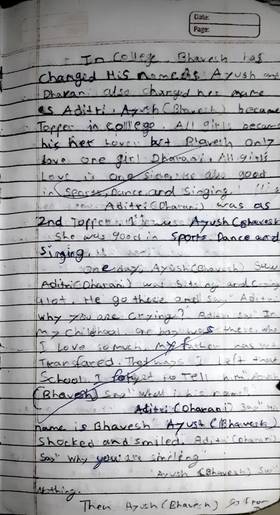 Date:
Page:
In College Bhavesh has
changed His name as Ayush and
Dharani also changed her name
as Aditri. Ayush (Bhavesh) became
Topper in college. All girls became
his her Love. but Bhavesh only
love one girl Dharani. All girls
Love is one side. He also good
in Sports, Dance and Singing.
Aditri (Dharani) was as
2nd Topper. Ayush (Bhavesh
She was good in Sports, Dance and
Singing.
One day, Ayush (Bhavesh) Saw
Aditri (Dharani) was sitting and crying
alot. He go there and say Aditri
why you are Crying? Aditri say In
my Childhood one boy was there who
I Love so much. My father was
Transfared. That I left that
School. I forgot to Tell him
(Bhavesh) Say "What is his name"
Aditri (Dharani) Say
name is Bhavesh" Ayush (Bhavesh)
Shocked and smiled. Aditri (Dharani)
Say "Why you are smiling"
Ayush (Bhavesh) Say
Nothing.
Then Ayush (Bhavesh) go from